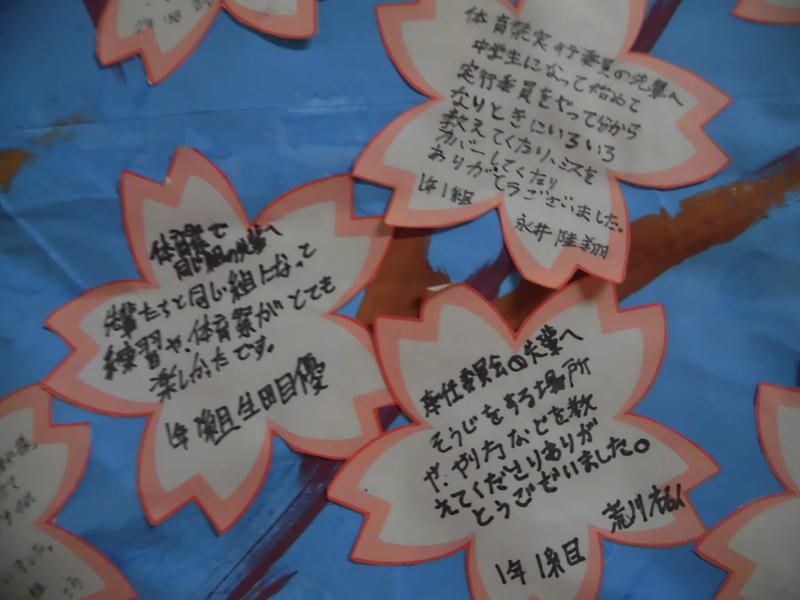 体育祭実行委員の先輩へ
中学生になって始めて
実行委員をやって分から
なりときにいろいろ
教えてくたり、ミスを
カバーしてくたり
ありがとうございました。
1年1組
永井 陸翔
体育祭で
同じ組の先輩へ
先輩たちと同じ組になって
練習や、体育祭がとても
楽しかたです。
1年1組 生田目優
奉仕委員会の先輩へ
そうじをする場所
や、やり方などを教
えてくださりありが
とうございました。
荒川
1年1組